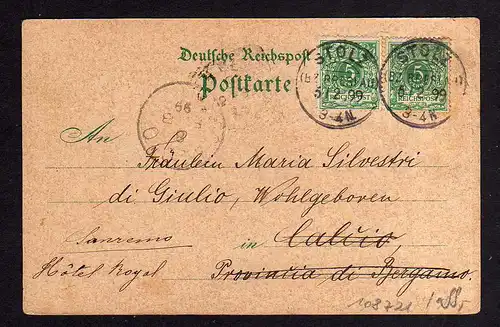 Deutsche Reichspost
Postkarte
STOLZ
(BZ. BRESLAU)
5/12 99
3-4N
STOLZ
(BZ. BRESLAU)
5/12 99
3-4N
REICHSPOST
An
Fräulein Maria Silvestri
di Giulio, Wohlgeboren
Sanremo
in Calcio,
Hôtel Royal
Provincia di Bergamo.
108721